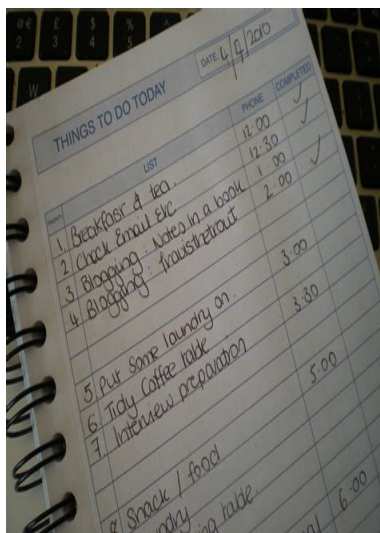 THINGS TO DO TODAY
DATE 4/9/2010
LIST PHONE COMPLETED
1 Breakfast & tea. 12:00 ✓
2 Check Email etc 12:30 ✓
3 Blogging: Notes in a book 1:00 ✓
4 Blogging: travisthetrout 2:00
5. Put some laundry on. 3:00
6. Tidy Coffee table 3:30
7. Interview preparation
5:00
8 Snack / food
table.
6:00